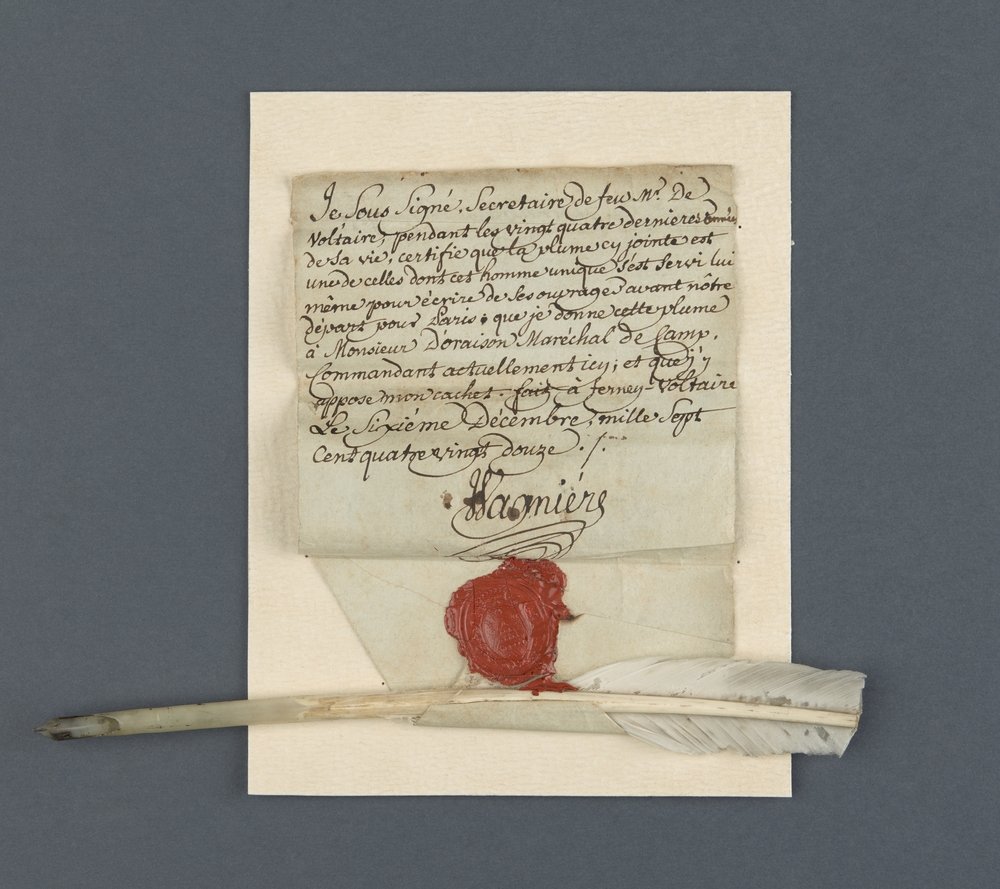 Je Sous Signé, Secretaire de feu Mr. De
Voltaire, pendant les vingt quatre dernieres années
de sa vie, certifie que la plume cy jointe est
une de celles dont cet homme unique s'est servi lui
même pour écrire de ses ouvrages avant nôtre
départ pour Paris; que je donne cette plume
à Monsieur D'oraison Maréchal de Camp,
Commandant actuellement icy; et que j'y
appose mon cachet. fait à ferney-Voltaire
Le Sixiéme Décembre, mille Sept
Cent quatre vingt douze ./.
Wagnière